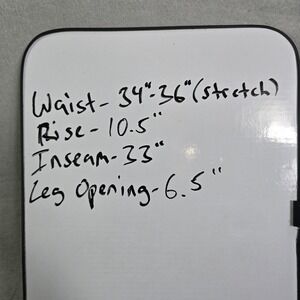 Waist- 34"-36" (stretch)
Rise- 10.5"
Inseam- 33"
Leg Opening- 6.5"